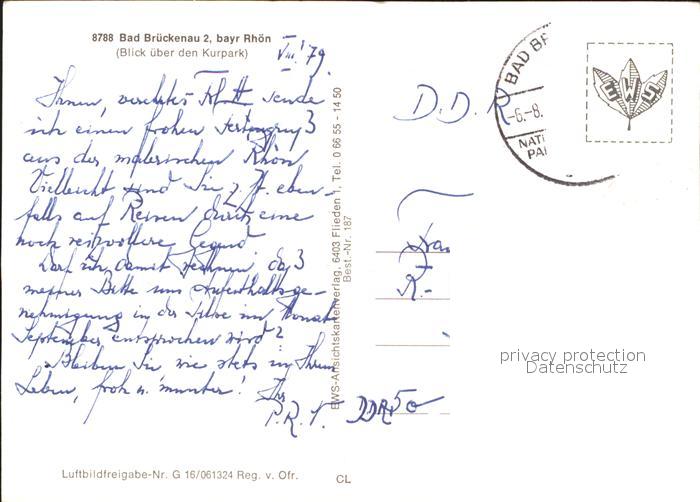 8788 Bad Brückenau 2, bayr Rhön
(Blick über den Kurpark)
VIII '79.
Ihnen, verehrtes sende
ich einen frohen Feriengruß
aus der malerischen Rhön
Vielleicht sind Sie z. Zt. eben-
falls auf Reisen durch eine
noch reizvollere Gegend
Darf ich damit rechnen, daß
meiner Bitte um Aufenthaltsge-
nehmigung in der im Monat
September entsprochen wird?
Bleiben Sie wie stets in Ihrem
Leben, froh u. munter! Ihr
P.R.
EWS-Ansichtskartenverlag, 6403 Flieden 1, Tel. 0 66 55 - 14 50
Best.-Nr. 187
D.D.R
BAD BR
-6.-8.
NATI
PAR
R.-
DDR 50
privacy protection
Datenschutz
Luftbildfreigabe-Nr. G 16/061324 Reg. v. Ofr.
CL